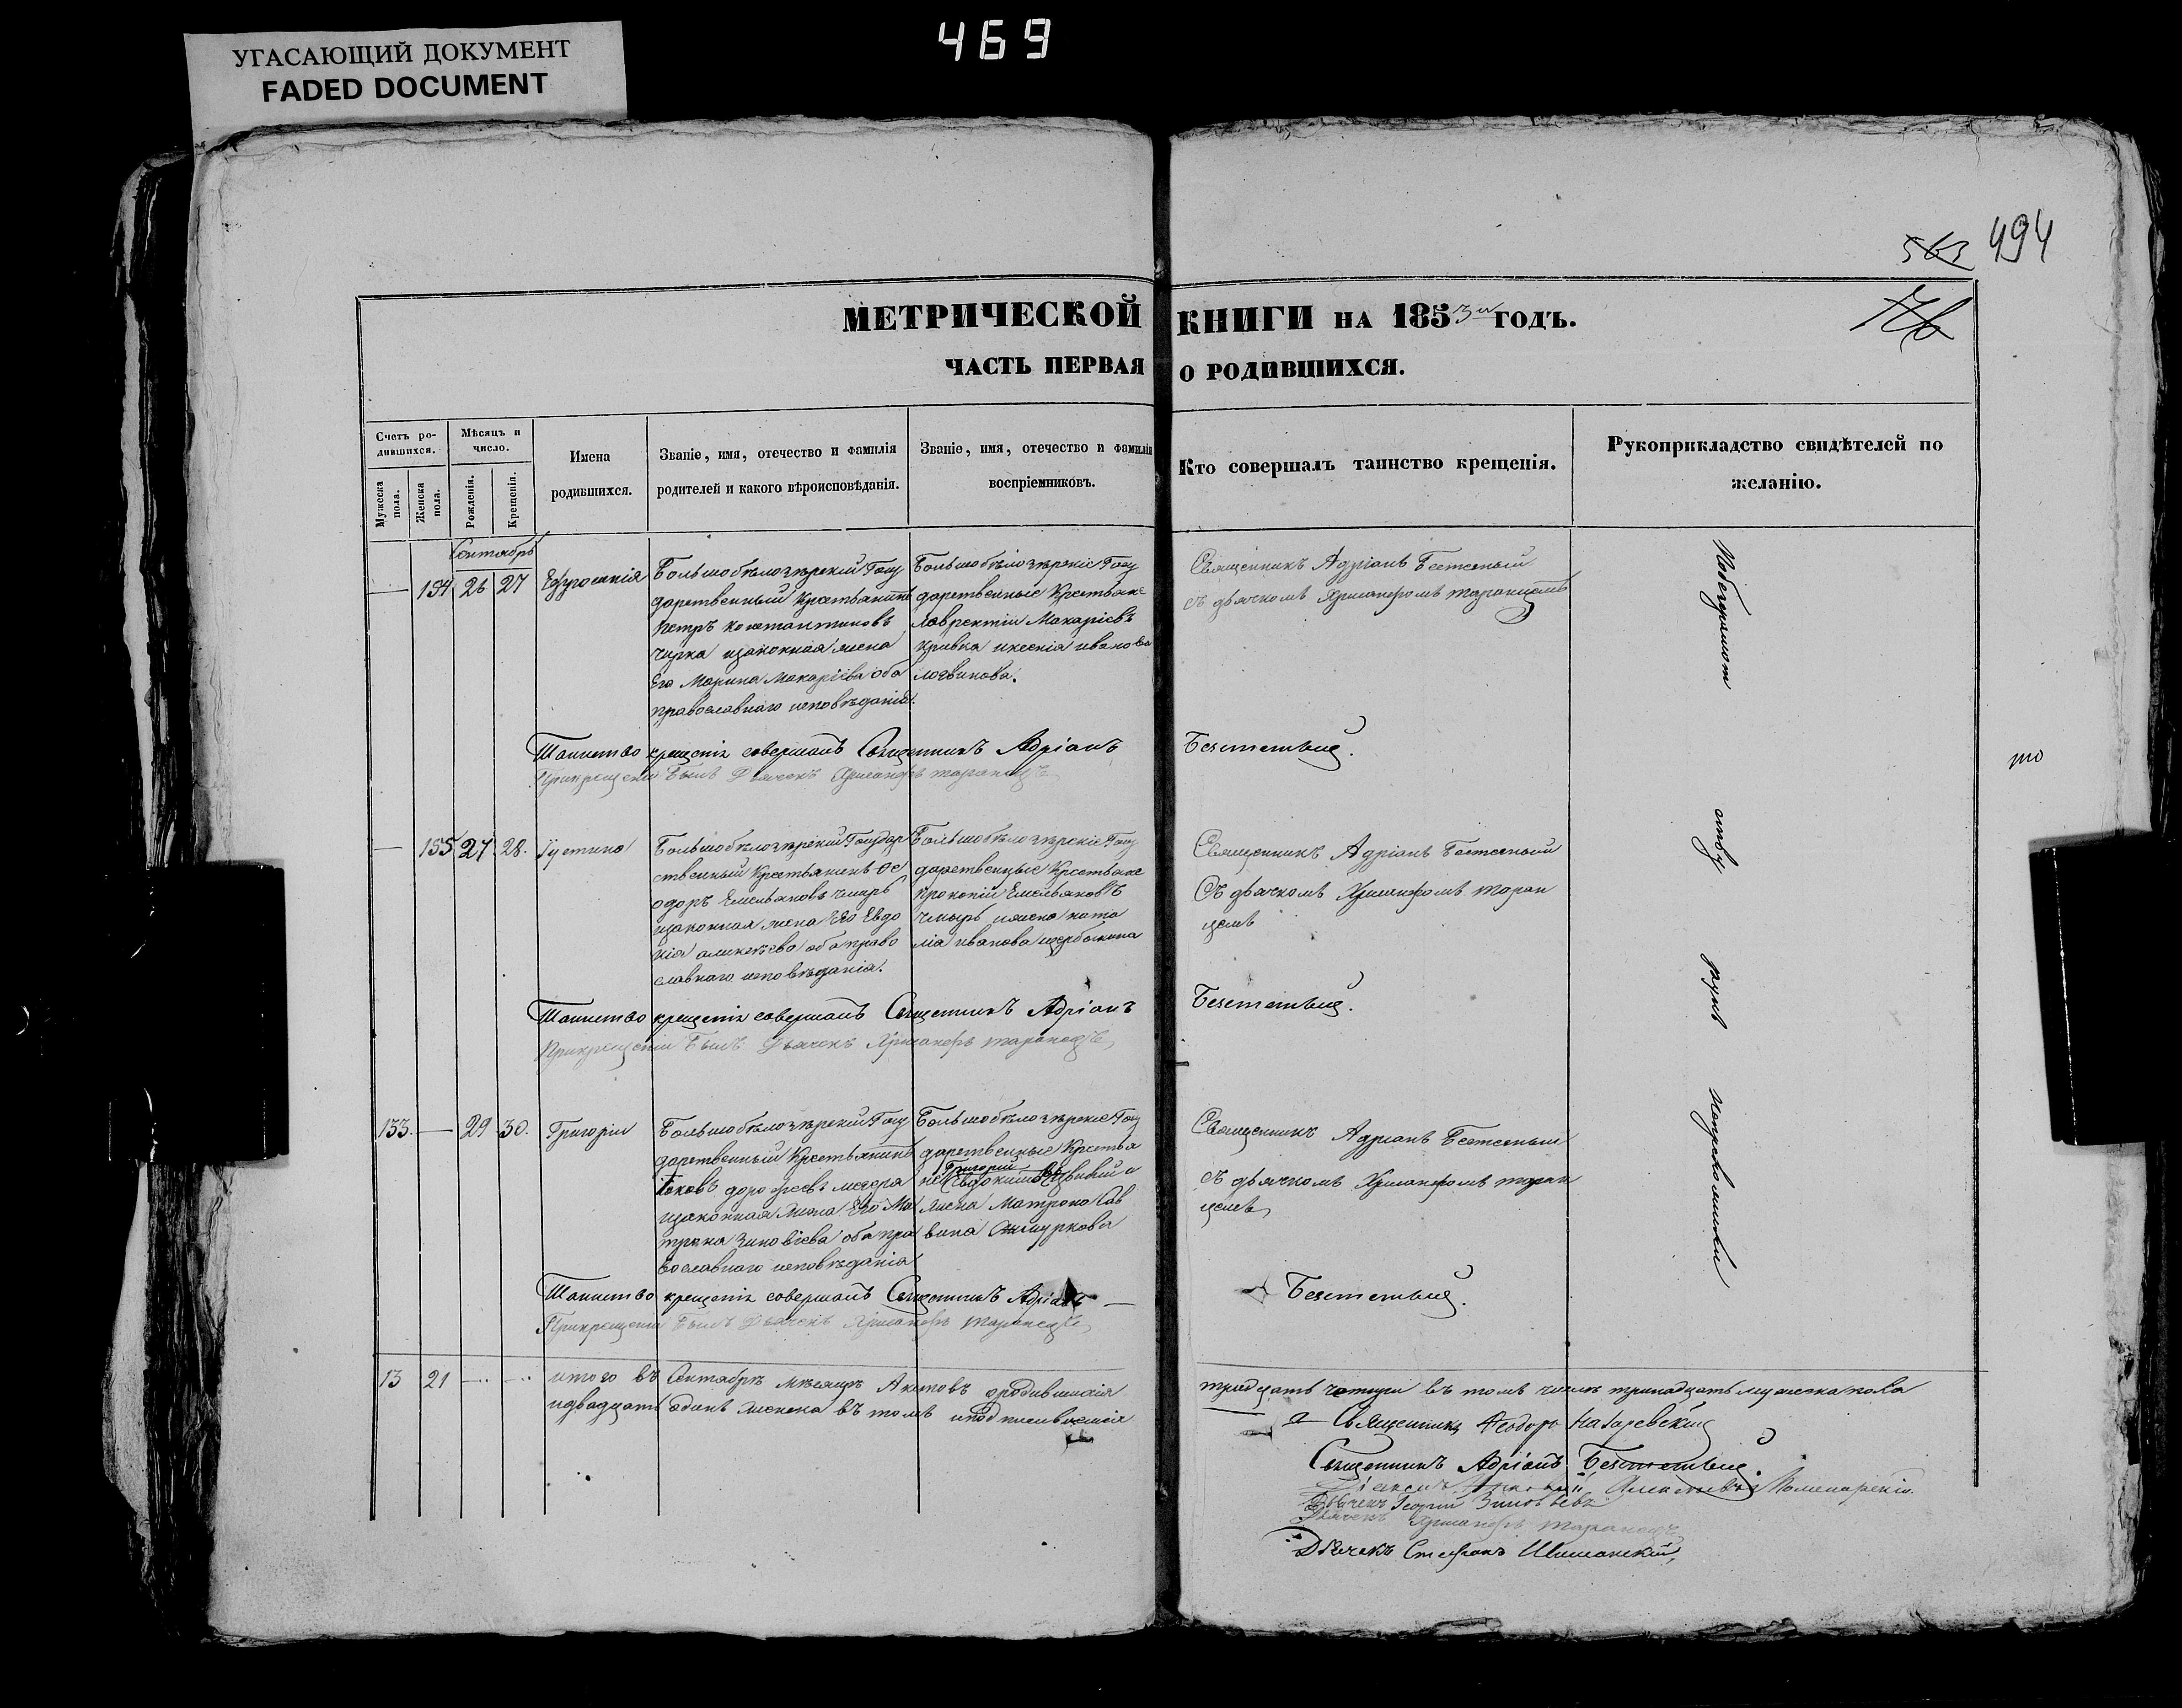 469
УГАСАЮЩИЙ ДОКУМЕНТ
FADED DOCUMENT
563 494
МЕТРИЧЕСКОЙ КНИГИ НА 1853й ГОДЪ.
ЧАСТЬ ПЕРВАЯ О РОДИВШИХСЯ.
Счетъ ро-
дившихся.
Мужеска пола.
Женска пола.
Мѣсяцъ и
число.
Рожденія.
Крещенія.
Имена
родившихся.
Званіе, имя, отечество и фамилія
родителей и какого вѣроисповѣданія.
Званіе, имя, отечество и фамилія
воспріемниковъ.
Кто совершалъ таинство крещенія.
Рукоприкладство свидѣтелей по
желанію.
Сентябрь
— 154 26 27 Ефросинія
Большобѣлозѣрскій Госу
дарственный Крестьянинъ
Петръ Константиновъ
Чирка изаконная жена
Его Марина Макаріева оба
православнаго исповѣданія.
Большобѣлозѣрскіе Госу
дарственные Крестьяне
Лаврентій Макаріевъ
Кривка иксенія иванова
логвинова.
Священникъ Адріанъ Безстенный
съ дьячкомъ Хрисанфомъ таранцемъ
Таинство крещенія совершалъ Священникъ Адріанъ
Прикрещеніи былъ Дьячекъ Хрисанфъ таранецъ
— 155 27 28. Іустина
Большобѣлозѣрскій Государ
ственный Крестьянинъ Ѳе
одоръ Емельяновъ чмырь
изаконная жена Его Евдо
кія аликсѣева оба право
славнаго исповѣданія.
Большобѣлозѣрскіе Госу
дарственные Крестьяне
прокопій Емельяновъ
Чмырь ижена ната
лія иванова щербакина
Священникъ Адріанъ Безстенный
Съ дьячкомъ Хрисанфомъ таран
цемъ
Таинство крещенія совершалъ Священникъ Адріанъ
Прикрещеніи былъ Дьячекъ Хрисанфъ таранецъ
133. — 29 30. Григорій
Большобѣлозѣрскій Госу
дарственный Крестьянинъ
Іаковъ дорофеевъ
изаконная жена Его Ма
трона Зиновіева оба пра
вославнаго исповѣданія
Большобѣлозѣрскіе Госу
дарственные Крестья
Григорій
жена Матрона Сав
вина
Священникъ Адріанъ Безстенный
съ дьячкомъ Хрисанфомъ таран
цемъ
Таинство крещенія совершалъ Священникъ Адріанъ —
Прикрещеніи былъ Дьячекъ Хрисанфъ таранецъ
13 21 — —
итого въ Сентябрѣ мѣсяцѣ Актовъ ородившихся тридцать четыри въ томъ числѣ тринадцать мужеска пола
идвадцать одинъ женска въ томъ иподписываемся
Священникъ Ѳеодоръ Назаревскій
Священникъ Адріанъ
Дьячекъ Георгій Зиновьевъ
Дьячекъ Хрисанфъ таранецъ
Дьячекъ Стефанъ Шиманскій